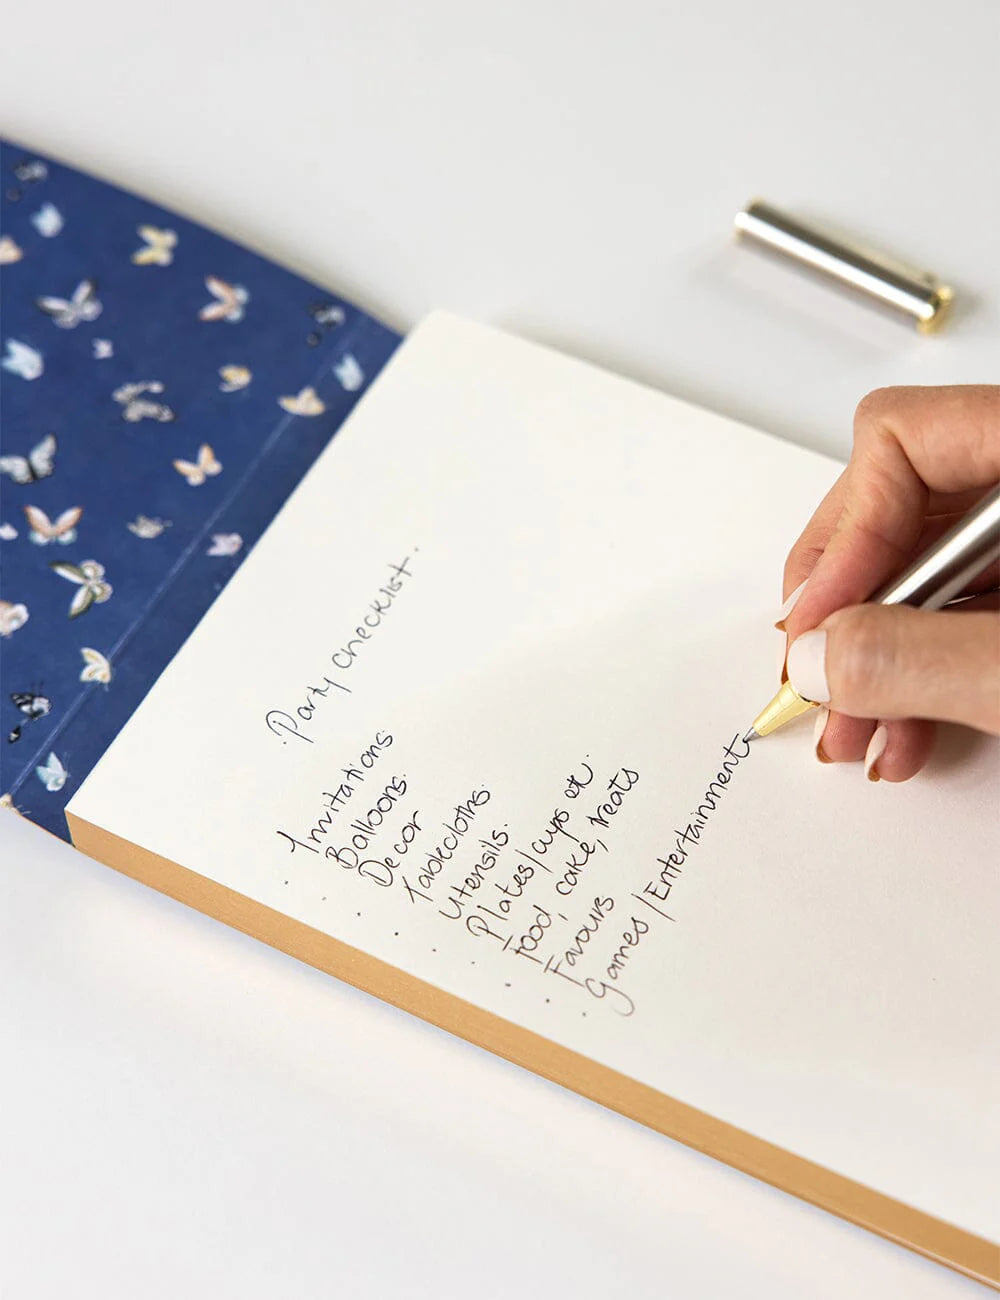 Party Checklist.
Invitations.
Balloons.
Decor
Tablecloths.
Utensils.
Plates/cups etc.
Food, cake, treats
Favours
Games/Entertainment